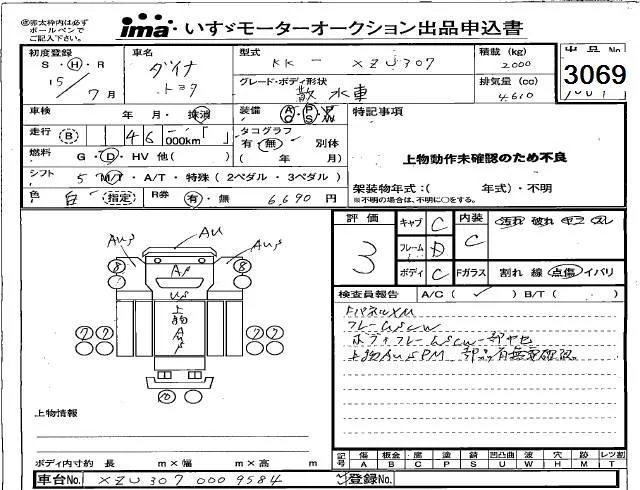 ㊟赤太枠内は必ず
ボールペンで
ご記入下さい。
ima いすゞモーターオークション出品申込書
初度登録 S・H・R 15/7月
車名 ダイナ トヨタ
型式 KK - XZU307
積載 (kg) 2000
出品No 3069
グレード・ボディ形状 散水車
排気量 (cc) 4610
車検 年・月・抹消
装備 A P
特記事項
走行 B 46 000km「 」
タコグラフ 有・無 別体
( 年 月)
燃料 G・D・HV 他( )
上物動作未確認のため不良
シフト 5 M/T・A/T・特殊(2ペダル・3ペダル)
架装物年式:( 年式)・不明
※不明の場合は、不明に○をする。
色 白 (指定) R券 有・無 6,690円
評価 3
キャブ C
フレーム D
ボディ C
内装 C
汚れ 破れ ヤニ スレ
Fガラス 割れ 線 点傷 イバリ
検査員報告 A/C( ✓ ) B/T( )
AUS AU AUS
8 AS 8
US
上物AUS
7 7 7 7
10
上物情報
ボディ内寸約 長 m×幅 m×高 m
記号 傷A 板金B 腐C 塗P 錆S 凹凸曲U 波W 穴H 跡M レツ割T
車台No. XZU307 0009584
登録No.